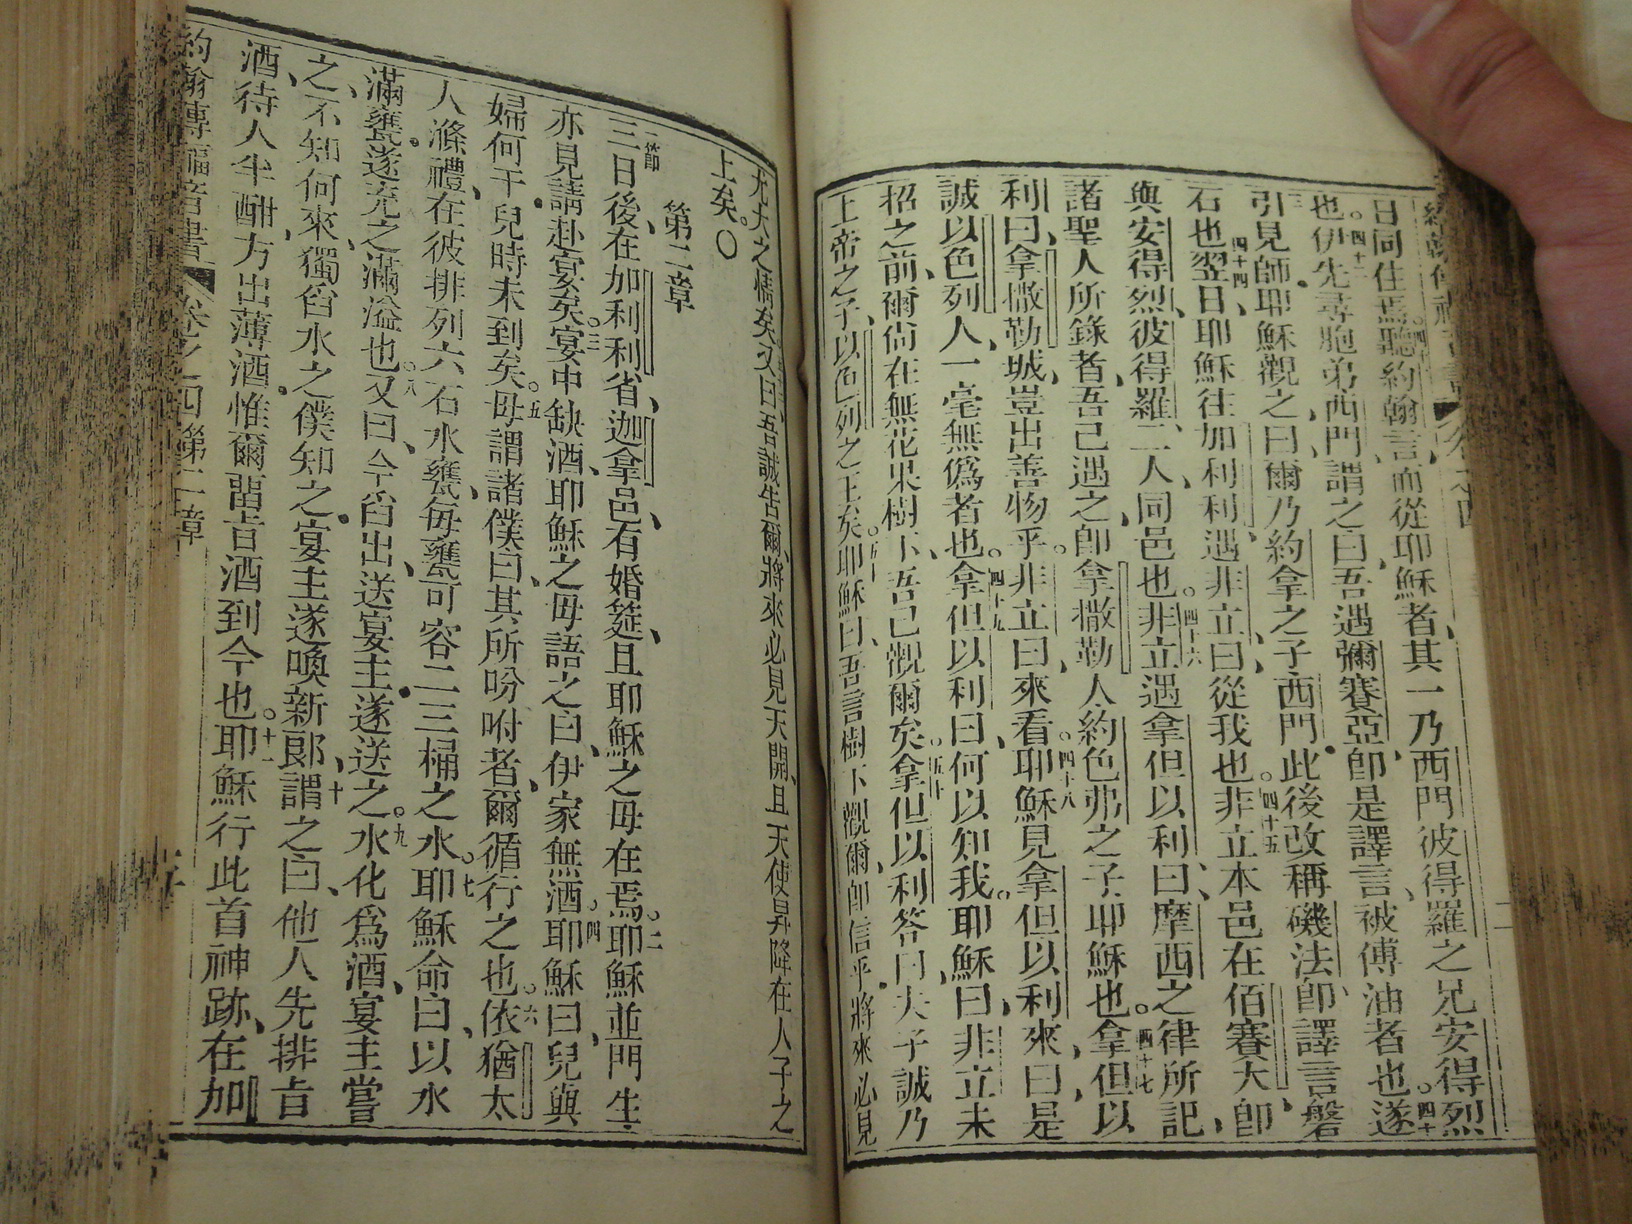 日同住焉聽約翰言而從耶穌者其一乃西門彼得羅之兄安得烈
也四十一伊先尋胞弟西門謂之曰吾遇彌賽亞卽是譯言被傅油者也四十遂
引見師耶穌觀之曰爾乃約拿之子西門此後改稱磯法卽譯言磐
石也四十四翌日耶穌往加利利遇非立曰從我也四十五非立本邑在伯賽大卽
與安得烈彼得羅二人同邑也四十六非立遇拿但以利曰摩西之律所記
諸聖人所錄者吾已遇之卽拿撒勒人約色弗之子耶穌也四十七拿但以
利曰拿撒勒城豈出善物乎非立曰來看四十八耶穌見拿但以利來曰是
誠以色列人一毫無僞者也四十九拿但以利曰何以知我耶穌曰非立未
招之前爾尙在無花果樹下吾已觀爾矣五十拿但以利答曰夫子誠乃
上帝之子以色列之王矣耶穌曰吾言樹下觀爾卽信乎將來必見
尤大之情矣又曰吾誠告爾將來必見天開且天使昇降在人子之
上矣〇
第二章
一節三日後在加利利省迦拿邑有婚筵且耶穌之母在焉二耶穌並門生
亦見請赴宴矣三宴中缺酒耶穌之母語之曰伊家無酒四耶穌曰兒與
婦何干兒時未到矣五母謂諸僕曰其所吩咐者爾循行之也六依猶太
人滌禮在彼排列六石水甕每甕可容二三桶之水七耶穌命曰以水
滿甕遂充之滿溢也八又曰今舀出送宴主遂送之九水化爲酒宴主嘗
之不知何來獨舀水之僕知之宴主遂喚新郞謂之曰十他人先排旨
酒待人半酣方出薄酒惟爾畱旨酒到今也十一耶穌行此首神跡在加
約翰傳福音書 卷之四 第二章